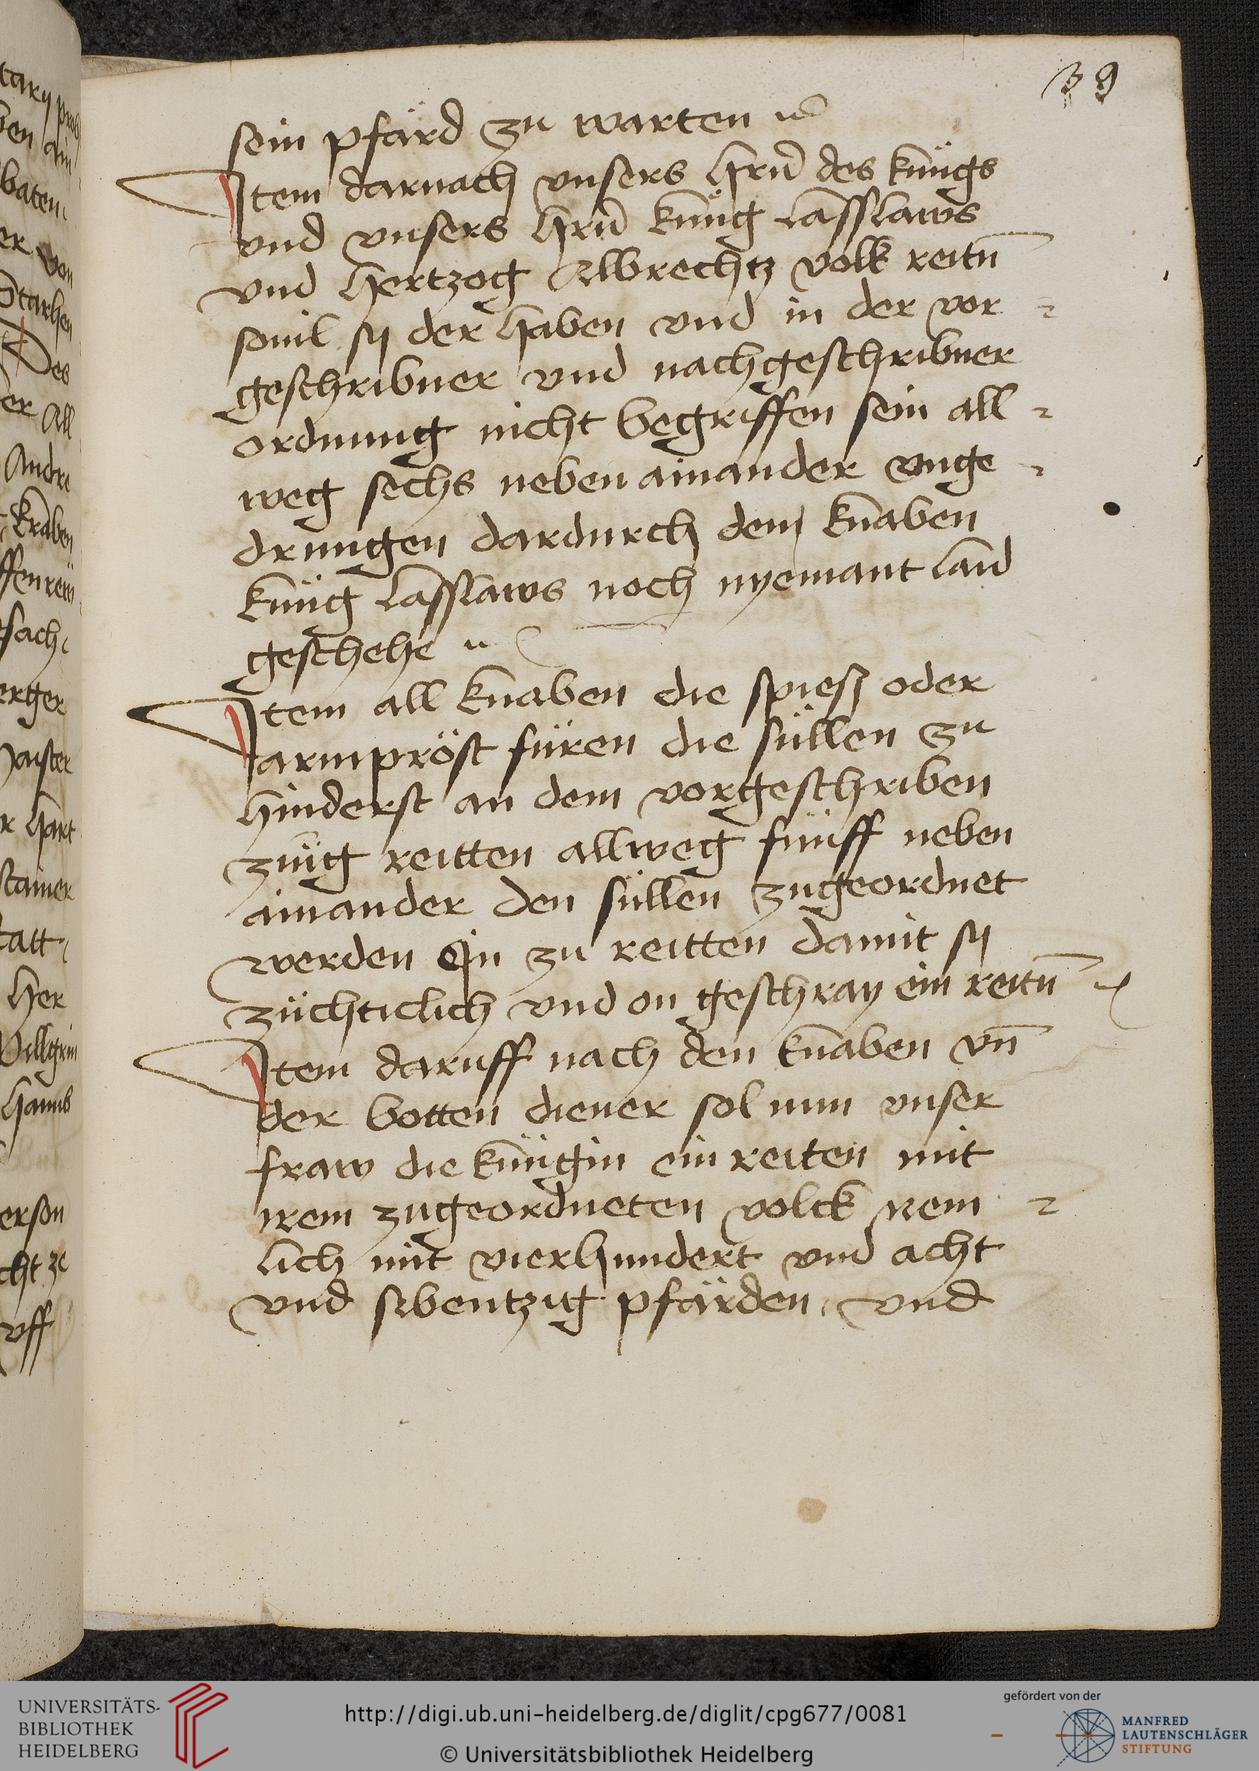 39
sein pfärd zu warten
Item darnach vnsers hrn̄ des künigs
vnd vnsers hrn̄ künig lasslaws
vnd hertzog Albrechtz volk reitn̄
souil sy der haben vnd in der vor
geschribner vnd nachgeschribner
ordnung nicht begriffen sein all
weg sechs neben ainander vnge
drungen dardurch dem knaben
künig lasslaws noch nyemant laid
geschehe
Item all knaben die spiesß oder
armpröst füren die süllen zu
hinderst an dem vorgeschriben
züg reitten allweg fünff neben
ainander den süllen zugeordnet
werden ein zu reitten damit sy
züchticlich vnd on geschray ein reitn̄
Item daruff nach den knaben vn̄
der botten diener sol nun vnser
fraw die künigin ein reiten mit
irem zugeordneten volck nem
lich mit vierhundert vnd acht
vnd sibentzig pfärden, vnd
UNIVERSITÄTS-
BIBLIOTHEK
HEIDELBERG
http://digi.ub.uni-heidelberg.de/diglit/cpg677/0081
© Universitätsbibliothek Heidelberg
gefördert von der
MANFRED
LAUTENSCHLÄGER
STIFTUNG